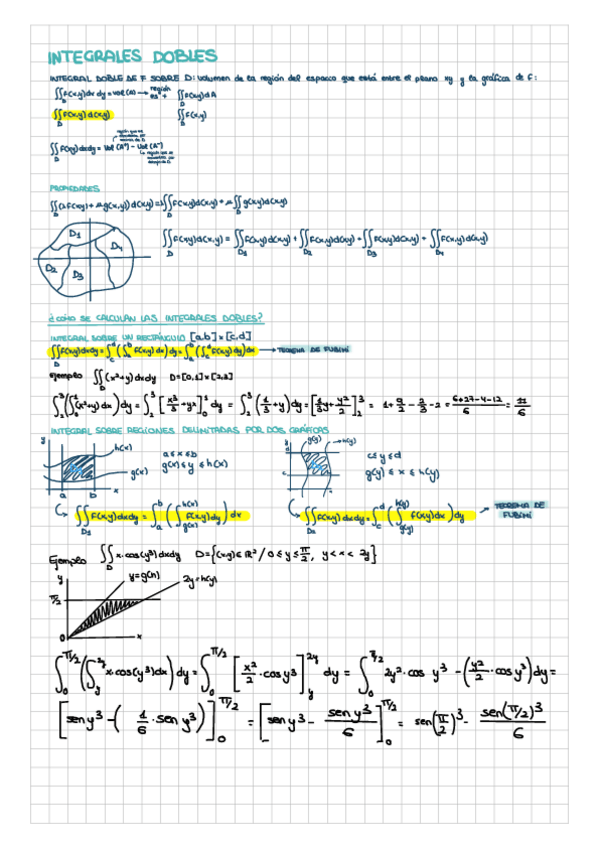 INTEGRALES DOBLES
INTEGRAL DOBLE DE F SOBRE D: volumen de la región del espacio que está entre el plano xy y la gráfica de f:
∬_D f(x,y)dx dy = vol (A) → región es + ∬_D f(x,y)dA
∬_D f(x,y) d(x,y) ∬_D f(x,y)
∬_D f(x,y)dxdy = Vol (A⁺) - Vol (A⁻)
PROPIEDADES
∬_D (λf(x,y) + μg(x,y)) d(x,y) = λ∬_D f(x,y)d(x,y) + μ∬_D g(x,y)d(x,y)
∬_D f(x,y)d(x,y) = ∬_D1 f(x,y)d(x,y) + ∬_D2 f(x,y)d(x,y) + ∬_D3 f(x,y)d(x,y) + ∬_D4 f(x,y)d(x,y)
D1 D4
D2 D3
¿CÓMO SE CALCULAN LAS INTEGRALES DOBLES?
INTEGRAL SOBRE UN RECTÁNGULO [a,b]×[c,d]
∬_D f(x,y)dxdy = ∫_c^d (∫_a^b f(x,y) dx) dy = ∫_a^b (∫_c^d f(x,y) dy) dx → TEOREMA DE FUBINI
Ejemplo ∬_D (x²+y) dxdy D=[0,1]×[2,3]
∫_2^3 (∫_0^1 (x²+y) dx) dy = ∫_2^3 [x³/3 + yx]_0^1 dy = ∫_2^3 (1/3 + y) dy = [1/3 y + y²/2]_2^3 = 1 + 9/2 - 2/3 - 2 = (6+27-4-12)/6 = 17/6
INTEGRAL SOBRE REGIONES DELIMITADAS POR DOS GRÁFICAS
y h(x) g(x) a b x
a ≤ x ≤ b
g(x) ≤ y ≤ h(x)
y d c g(y) h(y) x
c ≤ y ≤ d
g(y) ≤ x ≤ h(y)
∬_D1 f(x,y)dxdy = ∫_a^b (∫_g(x)^h(x) f(x,y) dy) dx
∬_D2 f(x,y) dxdy = ∫_c^d (∫_g(y)^h(y) f(x,y) dx) dy → TEOREMA DE FUBINI
Ejemplo ∬_D x·cos(y³) dxdy D={(x,y)∈ℝ² / 0≤y≤π/2, y<x<2y}
y y=g(x) 2y=h(y)
π/2
0 x
∫_0^π/2 (∫_y^2y x·cos(y³)dx) dy = ∫_0^π/2 [x²/2 · cos y³]_y^2y dy = ∫_0^π/2 2y²·cos y³ - (y²/2 · cos y³) dy =
[sen y³ - (1/6 · sen y³)]_0^π/2 = [sen y³ - sen y³/6]_0^π/2 = sen(π/2)³ - sen(π/2)³/6